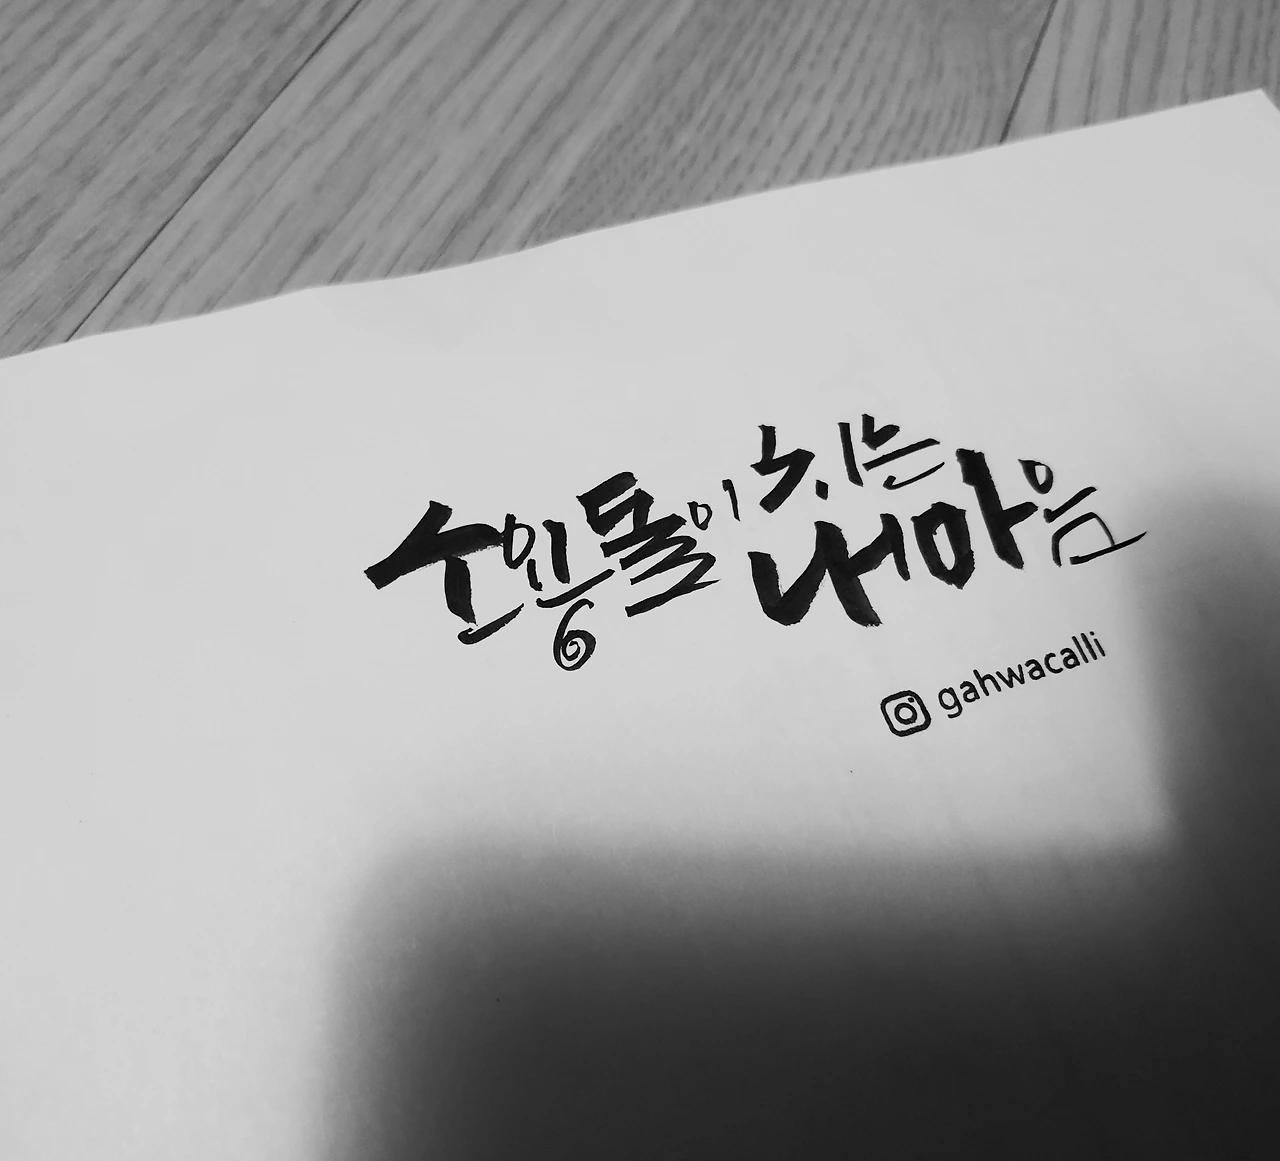 소용돌이 치는
내 마음
gahwacalli